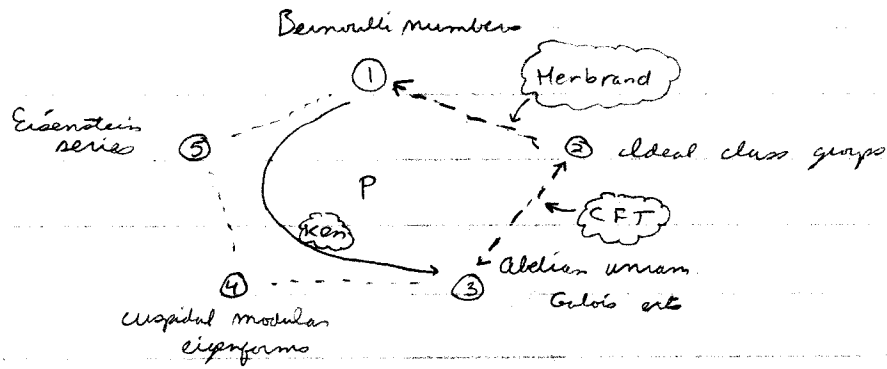 Bernoulli numbers
1
Herbrand
Eisenstein
series
5
2 Ideal class groups
P
Ken
CFT
4
3
Abelian unram
Galois exts
cuspidal modular
eigenforms